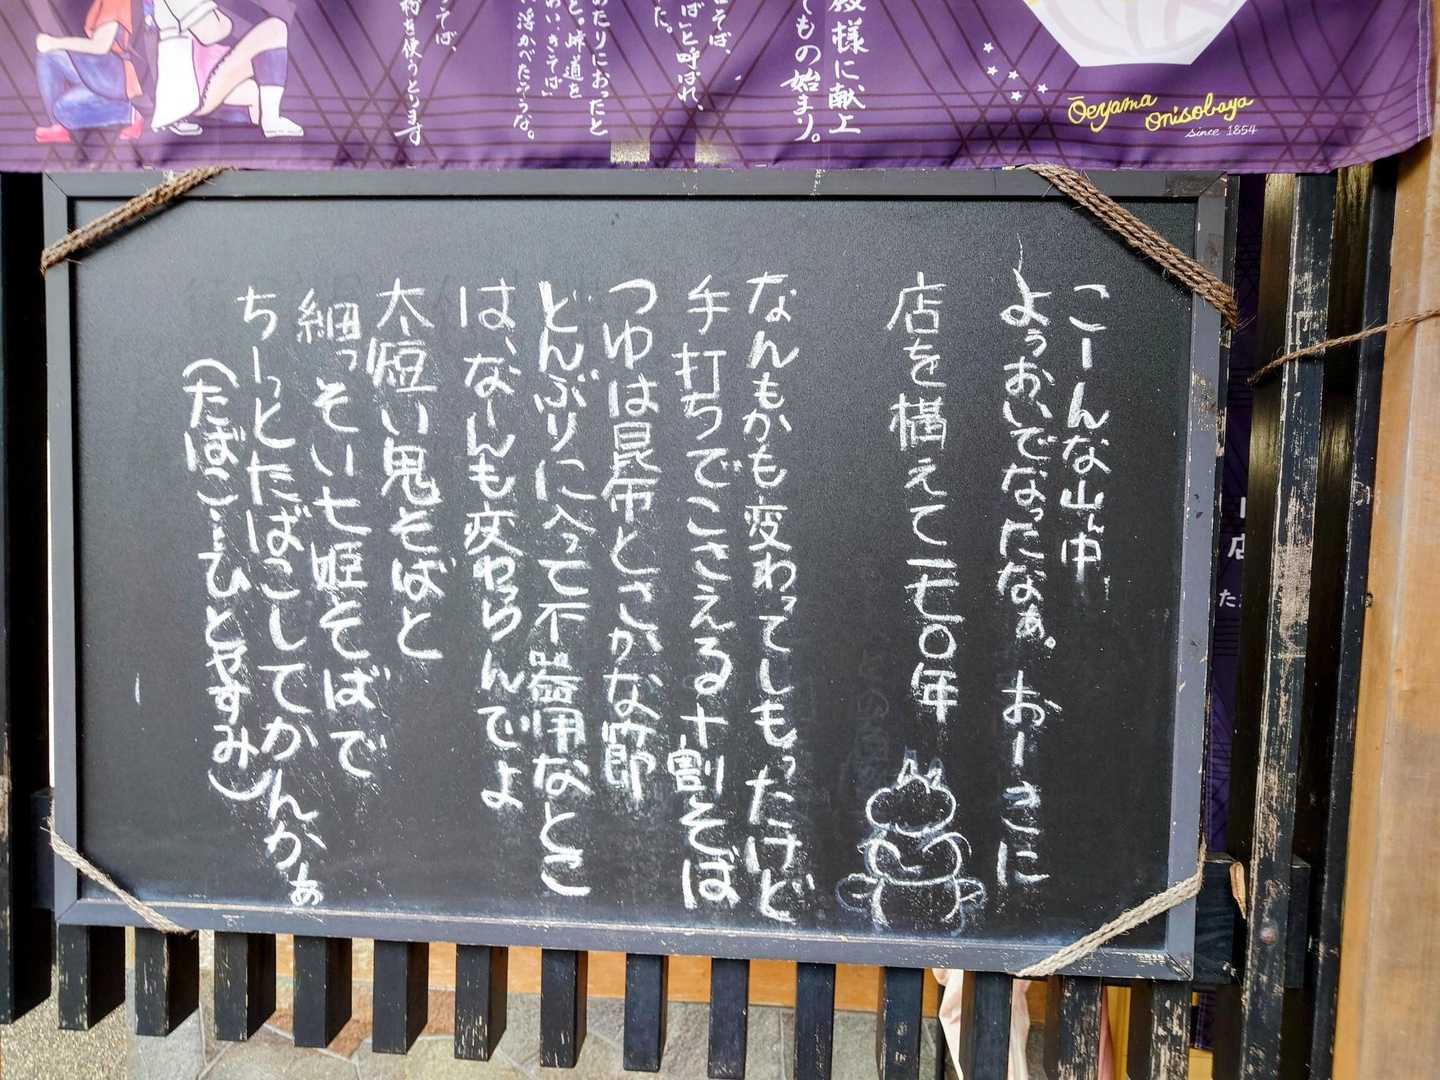 殿様に、献上
ても の始まり。
そば、
ば」と呼ばれ、
た。
あたりにおったと
と。峠道を
おいきそば」
浮かべたそうな。
っては、
粉を使うとります
Oeyama
Onisobaya
since 1854
こーんな山ん中
よぅおいでなったなぁ。おーきに
店を構えて一七〇年
なんもかも変わってしもったけど
手打ちでこさえる十割そば
つゆは昆布とさかな節
どんぶりに入って不器用なとこ
は、なーんも変わらんでよ
太短い鬼そばと
細っそい七姫そばで
ちーっとたばこしてかんかぁ
(たばこ…ひとやすみ)
店
た